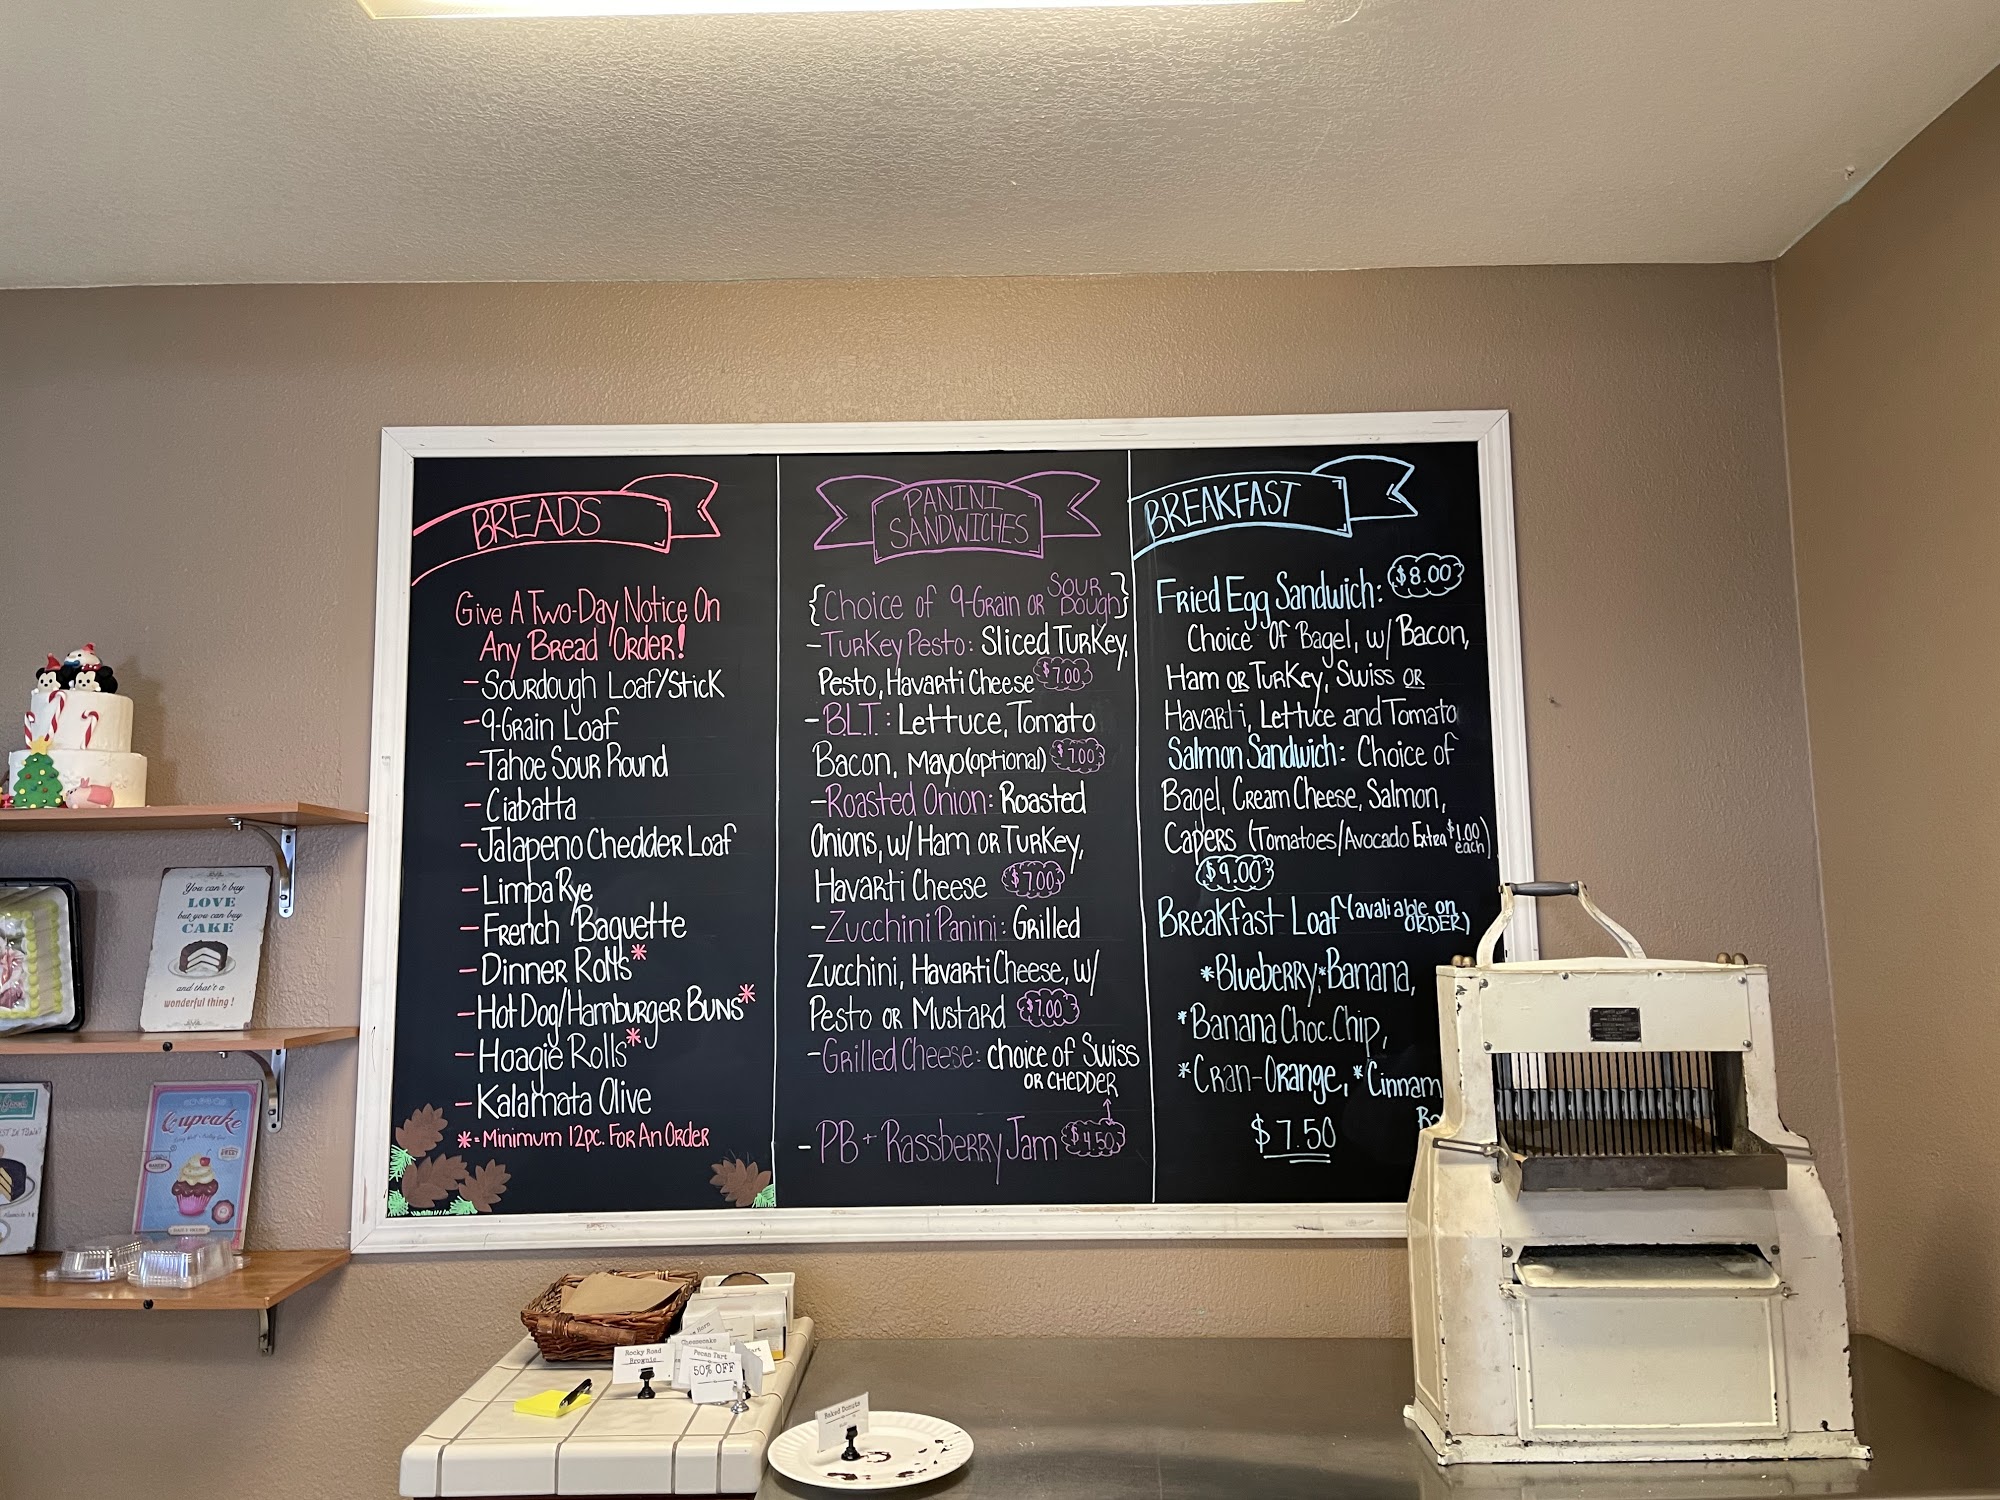 BREADS
Give A Two-Day Notice On
Any Bread Order!
- Sourdough Loaf/Stick
- 9-Grain Loaf
- Tahoe Sour Round
- Ciabatta
- Jalapeno Chedder Loaf
- Limpa Rye
- French Baguette
- Dinner Rolls*
- Hot Dog/Hamburger Buns*
- Hoagie Rolls*
- Kalamata Olive
*= Minimum 12pc. For An Order
PANINI
SANDWICHES
{Choice of 9-Grain or Sour Dough}
- Turkey Pesto: Sliced Turkey,
Pesto, Havarti Cheese $7.00
- B.L.T.: Lettuce, Tomato
Bacon, Mayo (optional) $7.00
- Roasted Onion: Roasted
Onions, w/ Ham or Turkey,
Havarti Cheese $7.00
- Zucchini Panini: Grilled
Zucchini, Havarti Cheese, w/
Pesto or Mustard $7.00
- Grilled Cheese: choice of Swiss
or chedder
- PB + Rassberry Jam $4.50
BREAKFAST
Fried Egg Sandwich: $8.00
Choice Of Bagel, w/ Bacon,
Ham or Turkey, Swiss or
Havarti, Lettuce and Tomato
Salmon Sandwich: Choice of
Bagel, Cream Cheese, Salmon,
Capers (Tomatoes/Avocado Extra $1.00 each)
$9.00
Breakfast Loaf (avaliable on ORDER)
*Blueberry, *Banana,
*Banana Choc. Chip,
*Cran-Orange, *Cinnam
$7.50
You can't buy
LOVE
but you can buy
CAKE
and that's a
wonderful thing!
Cupcake
BAKERY
Rocky Road
Brownie
Cheesecake
Pecan Tart
50% OFF
Baked Donuts